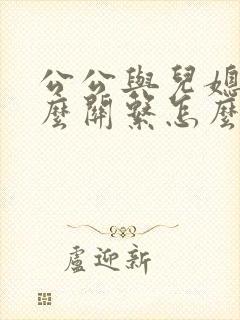 公公與兒媳
麼關繫怎麼
盧迎新